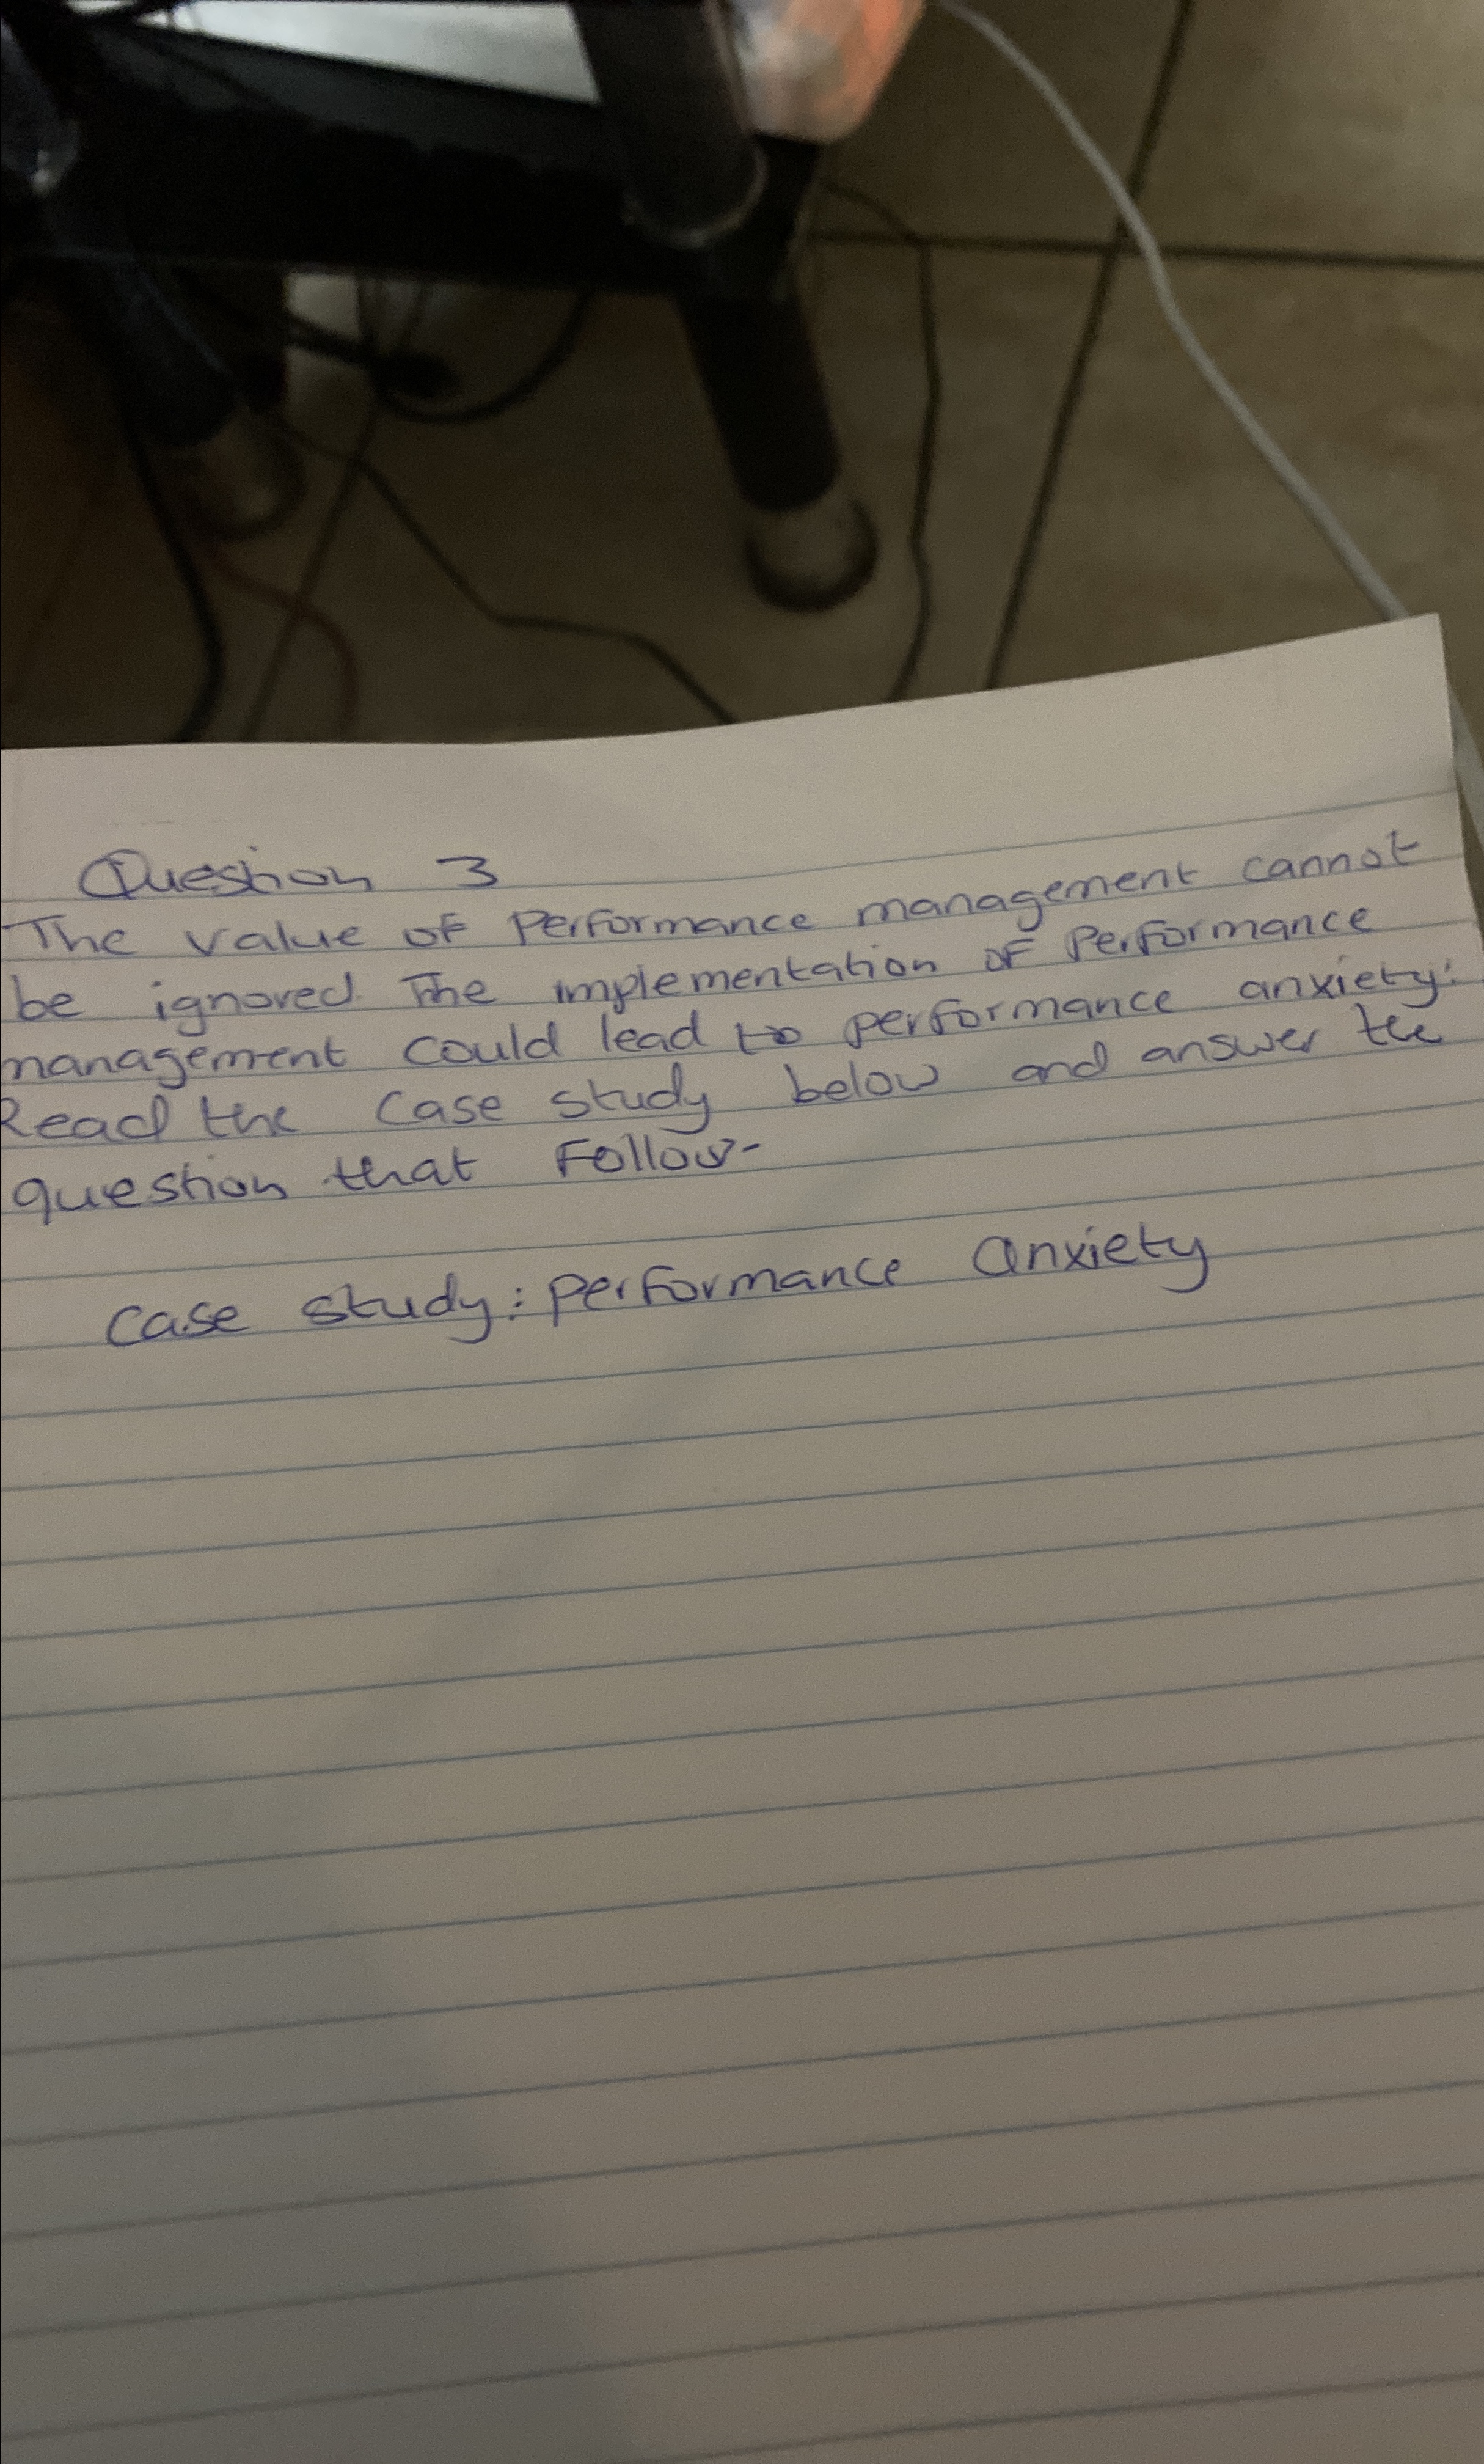 Question 3
The value of Performance management cannot
be ignored. The implementation of Performance
management could lead to performance anxiety.
Read the case study below and answer the
question that Follow-
Case study: performance anxiety